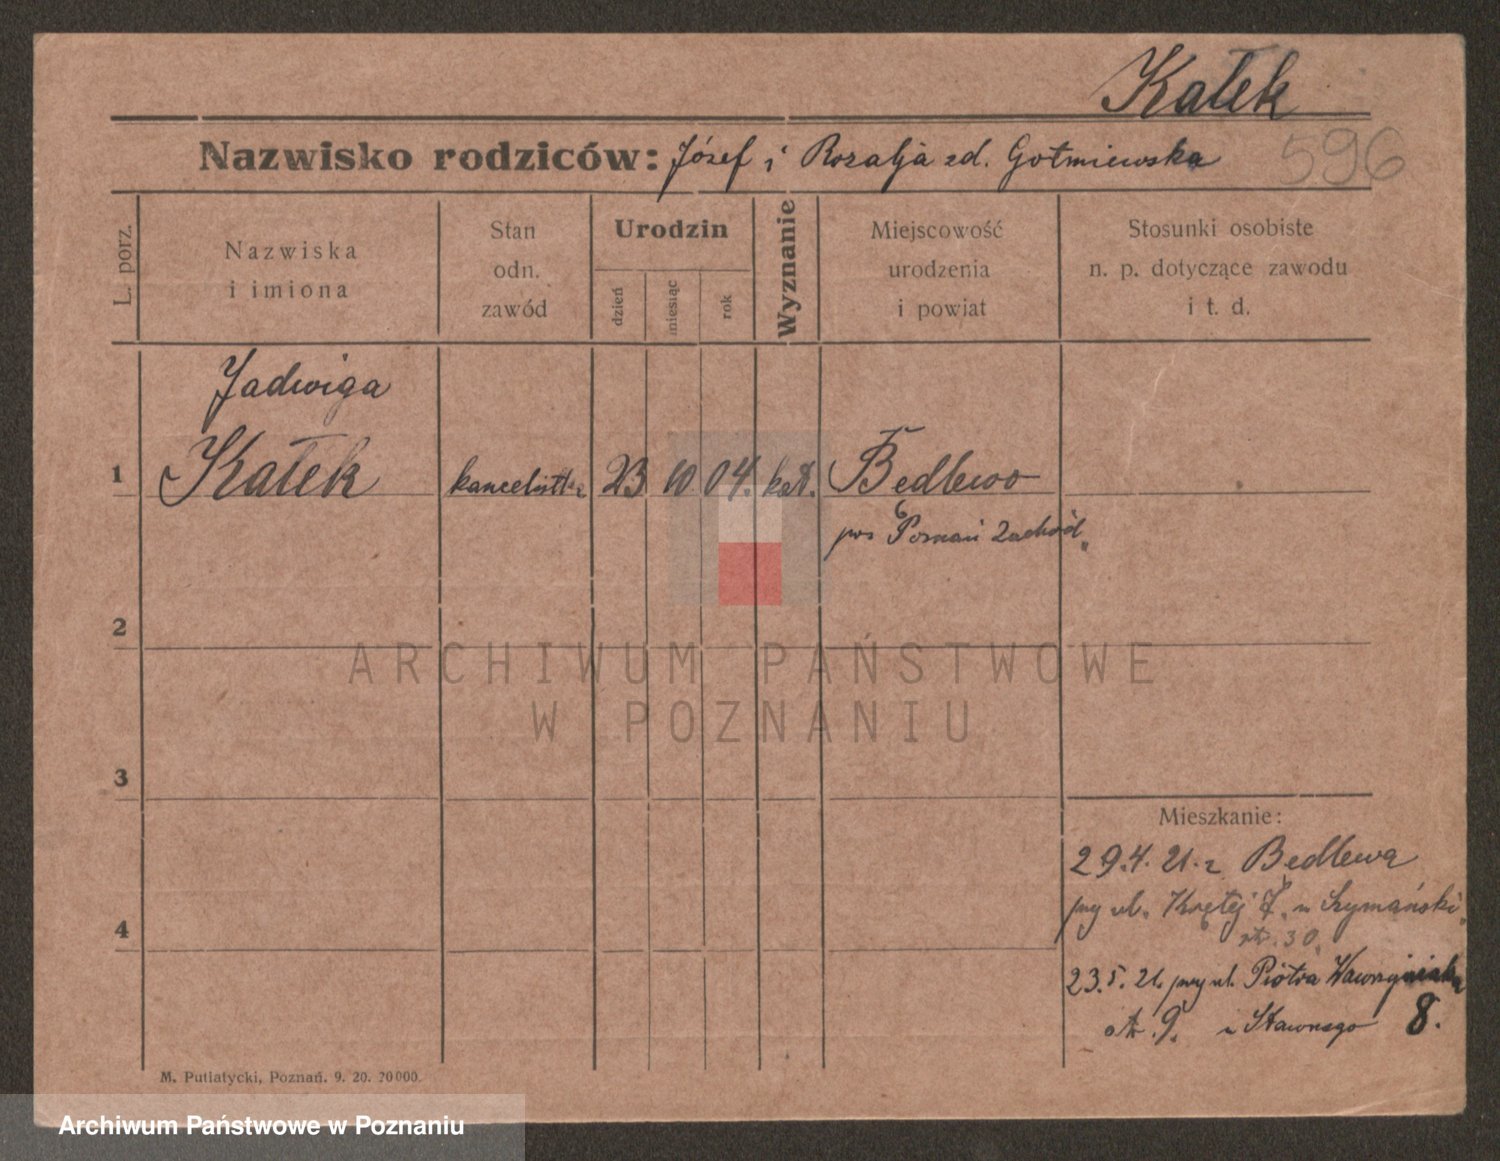 Kałek
Nazwisko rodziców: Józef i Rozalja zd. Gołmiewska
596
L. porz.
Nazwiska
i imiona
Stan
odn.
zawód
Urodzin
dzień
miesiąc
rok
Wyznanie
Miejscowość
urodzenia
i powiat
Stosunki osobiste
n. p. dotyczące zawodu
i t. d.
Jadwiga
1 Kałek kancelistka 23 10 04. kat. Bedlewo
Poznań Zachód
2
3
4
ARCHIWUM PAŃSTWOWE
W POZNANIU
Mieszkanie:
29.4. 21. z Bedlewa
przy ul. Krętej 7. u Szymański
str. 30
23.5. 21. przy ul. Piotra Wawrzyniaka
8.
9. u Sławnego
M. Putiatycki, Poznań. 9. 20. 20000.
Archiwum Państwowe w Poznaniu